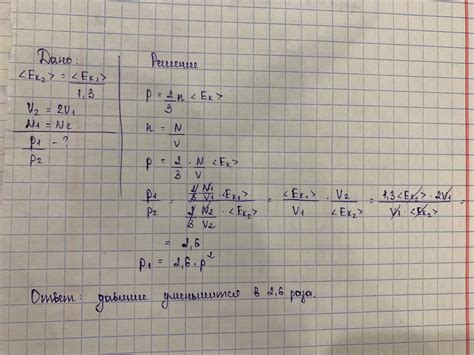 Дано:
<Eк₂> = <Eк₁> / 1,3
V₂ = 2V₁
N₁ = N₂
p₁ / p₂ - ?
Решение
p = 2/3 n <Eк>
n = N / V
p = 2/3 · N/V <Eк>
p₁ / p₂ = (2/3 N₁/V₁ · <Eк₁>) / (2/3 N₂/V₂ · <Eк₂>) = <Eк₁> / V₁ · V₂ / <Eк₂> = 1,3<Eк₂> · 2V₁ / V₁ · <Eк₂> =
= 2,6
p₁ = 2,6 · p²
Ответ: давление уменьшится в 2,6 раза.